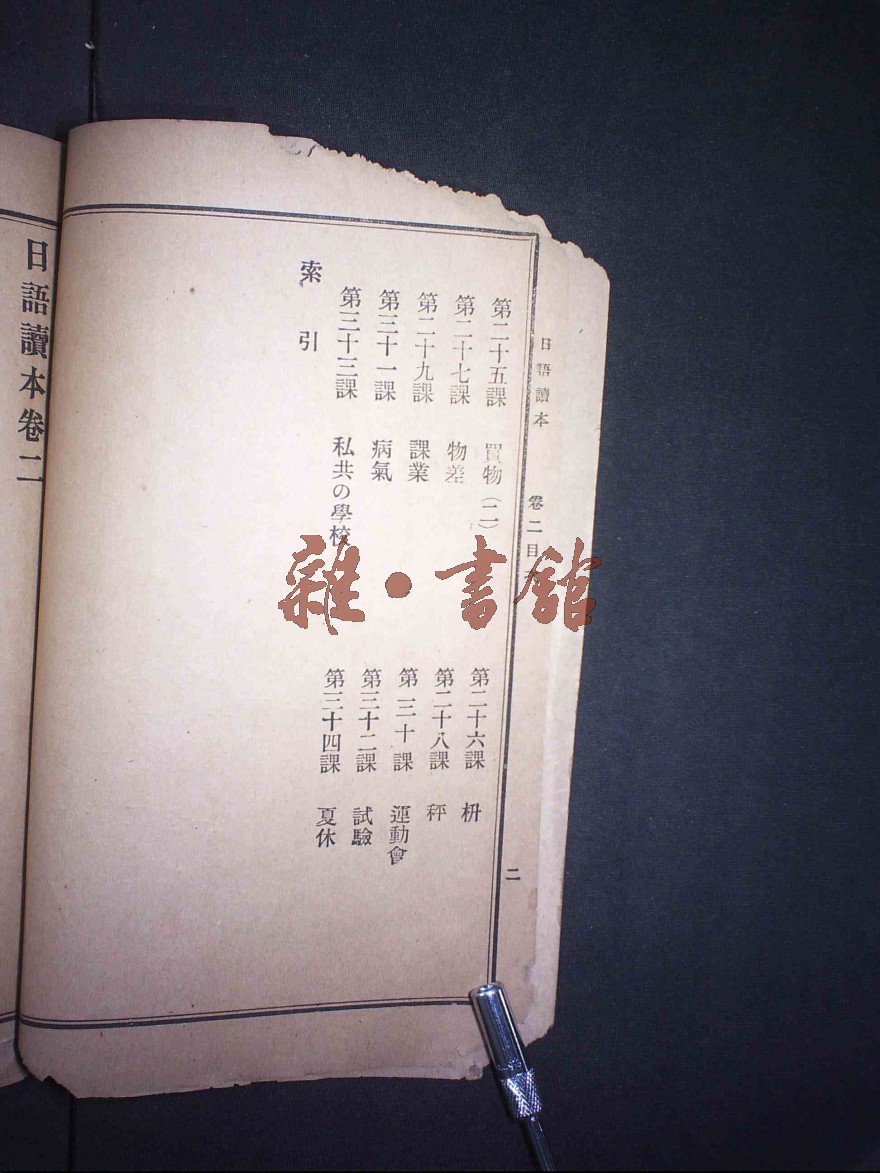 日語讀本
卷二目
二
第二十五課 買物(二)
第二十六課 枡
第二十七課 物差
第二十八課 秤
第二十九課 課業
第三十課 運動會
第三十一課 病氣
第三十二課 試驗
第三十三課 私共の學校
第三十四課 夏休
索引
日語讀本卷二
雜·書館